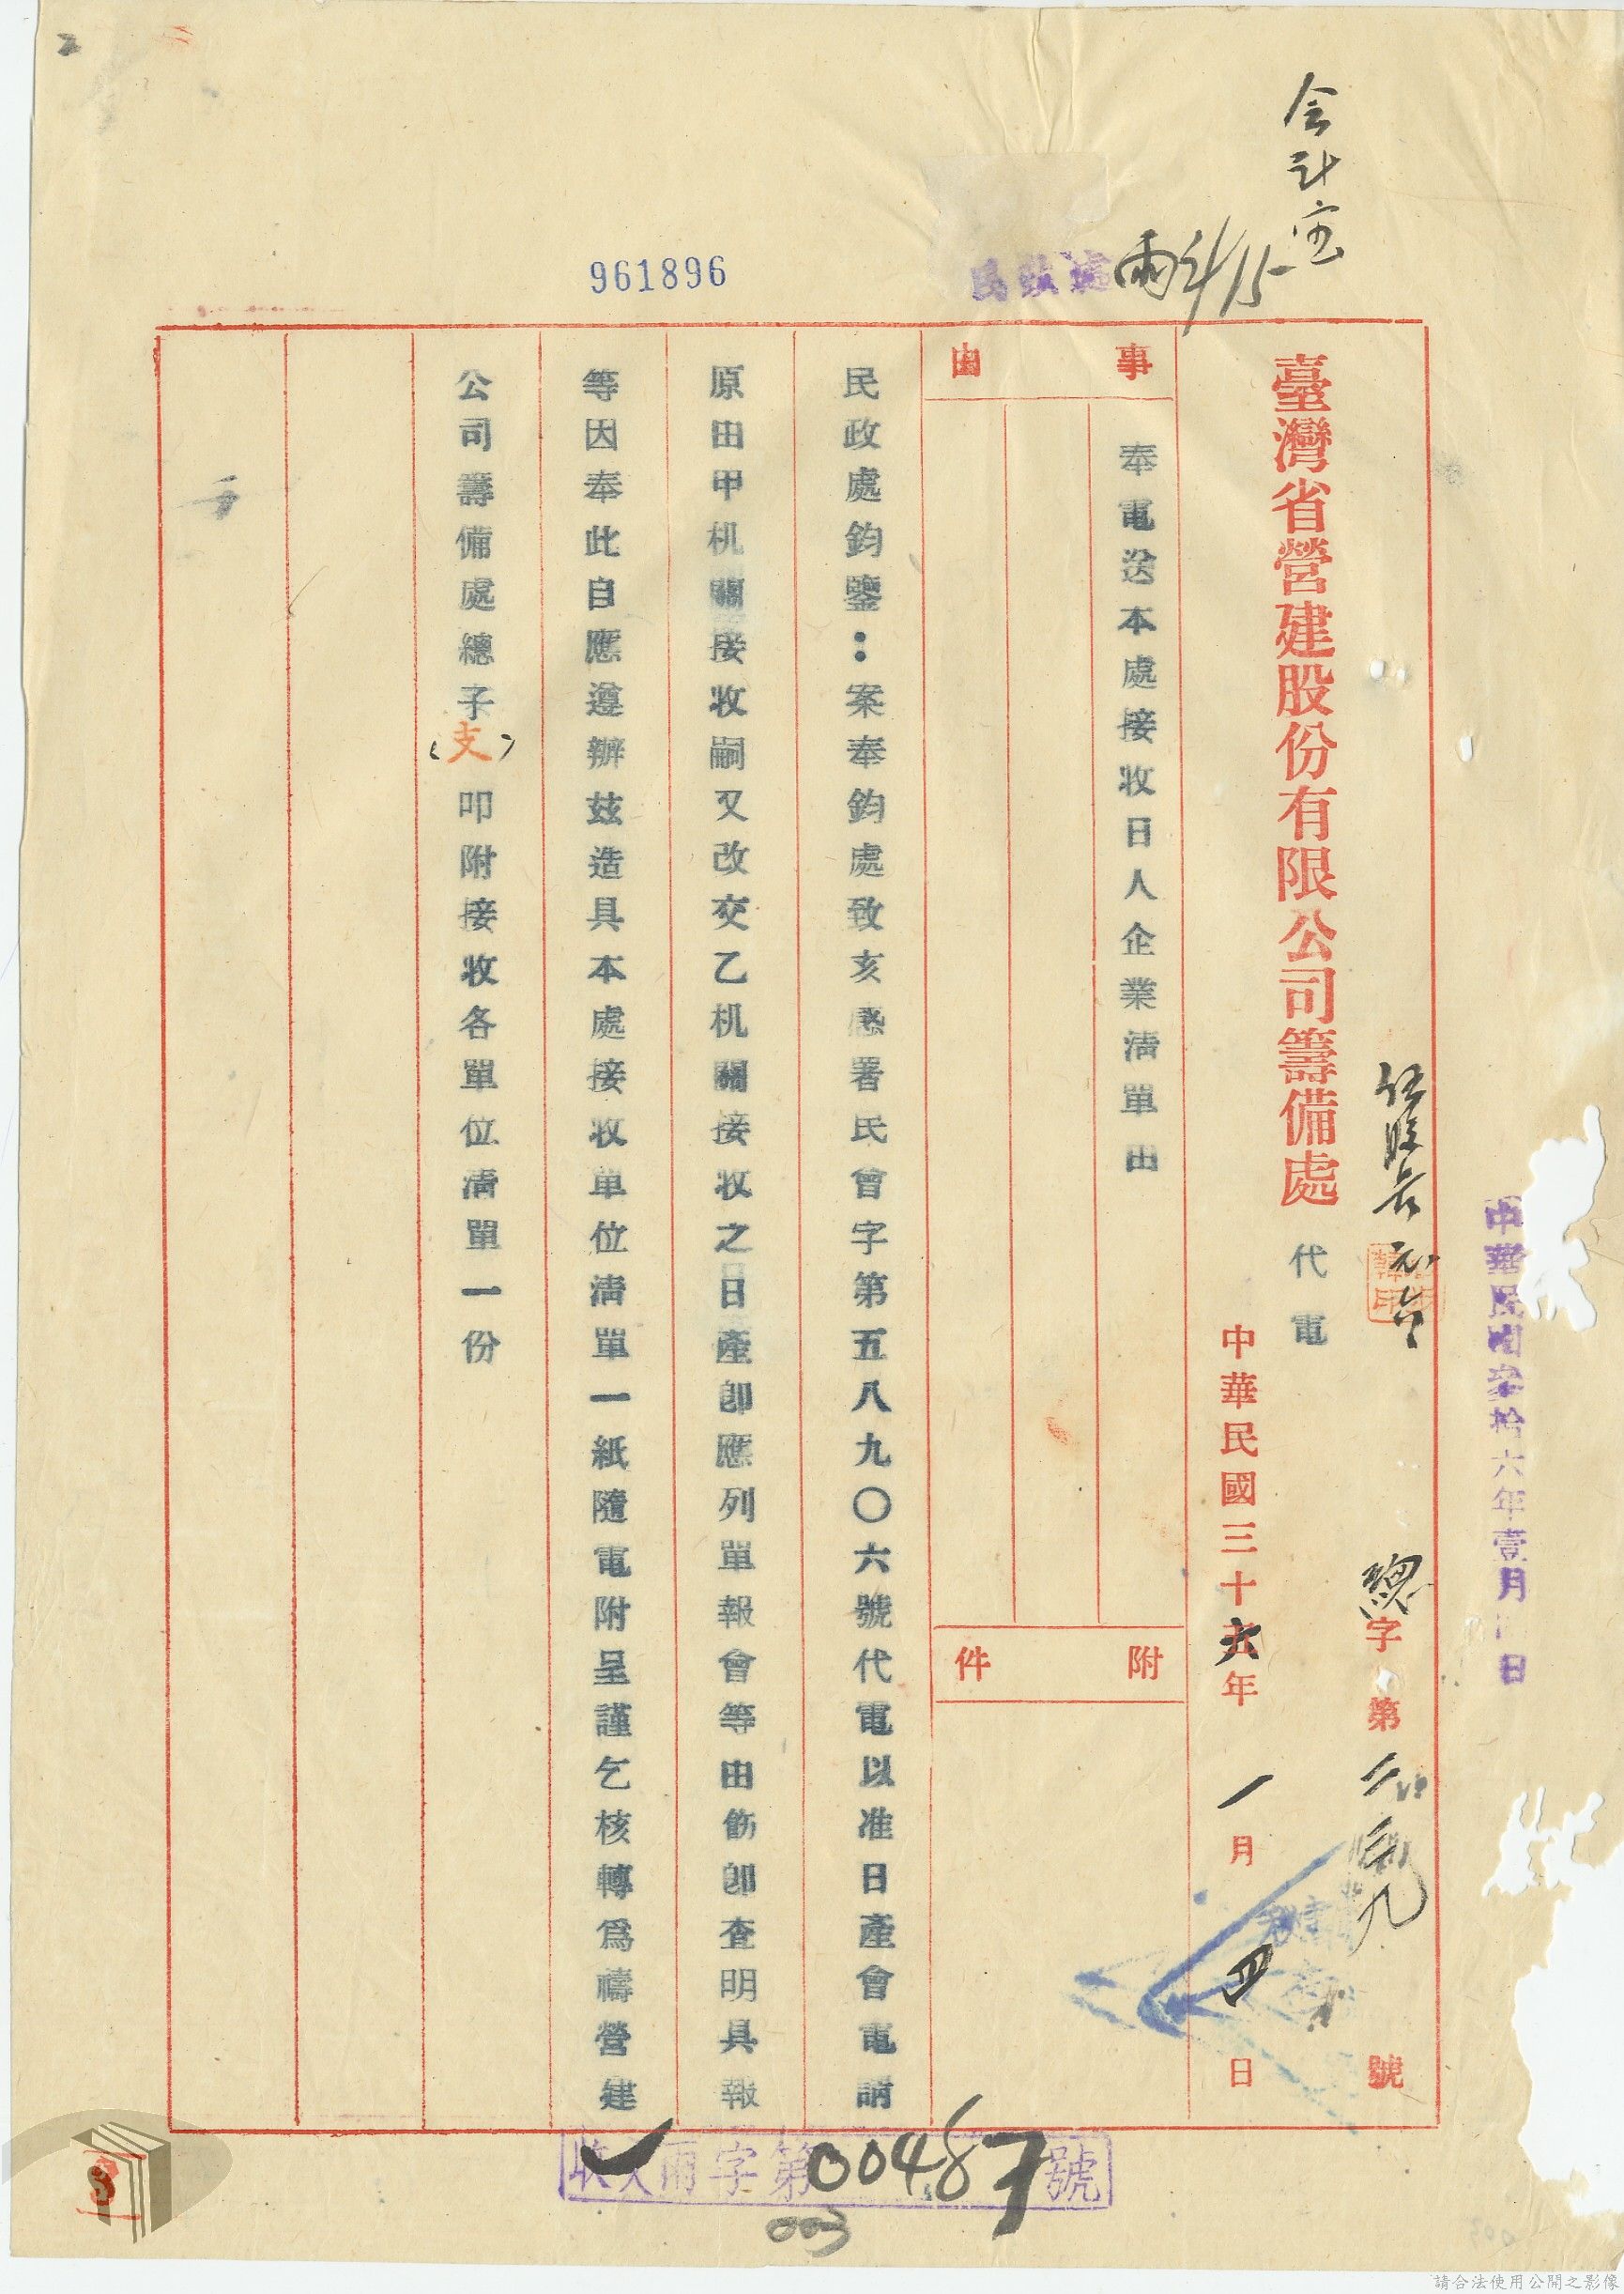 会計室
雨 1/15
民政處
961896
中華民國叁拾六年壹月 日
總字第 號
臺灣省營建股份有限公司籌備處 代電
中華民國三十六年一月四日
事由
奉電送本處接收日人企業清單由
附件
民政處鈞鑒：案奉鈞處致亥感署民會字第五八九〇六號代電以准日產會電請
原由甲机關接收嗣又改交乙机關接收之日產卽應列單報會等由飭卽查明具報
等因奉此自應遵辦玆造具本處接收單位清單一紙隨電附呈謹乞核轉爲禱營建
公司籌備處總子(支)叩附接收各單位清單一份
收文雨字第00487號
003
請合法使用公開之影像